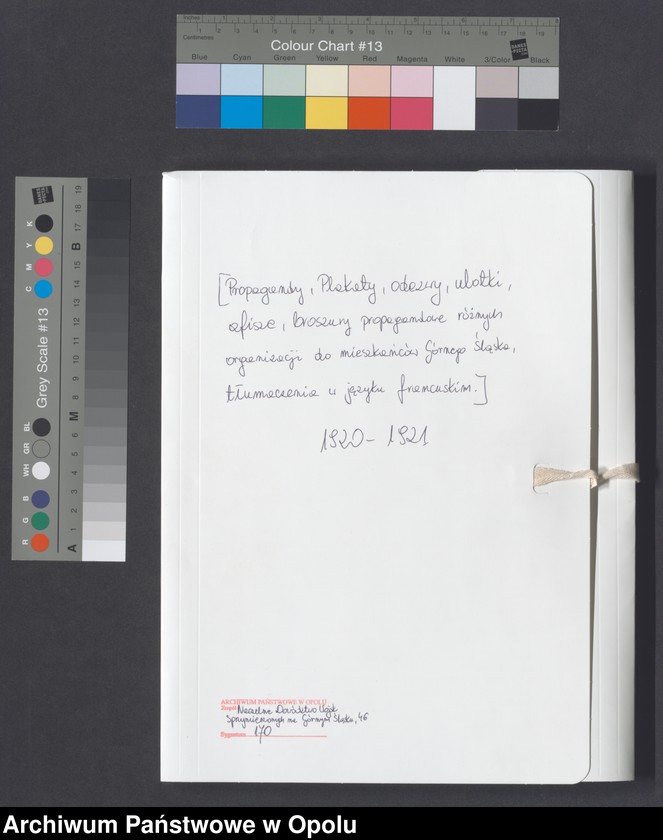 Inches 1 2 3 4 5 6 7 8
Centimetres 1 2 3 4 5 6 7 8 9 10 11 12 13 14 15 16 17 18 19
Colour Chart #13
Blue Cyan Green Yellow Red Magenta White 3/Color Black
Grey Scale #13
C M Y K
R G B WH GR BL
A 1 2 3 4 5 6 M 8 9 10 11 12 13 14 15 B 17 18 19
[Propagandy, Plakaty, odezwy, ulotki,
afisze, broszury propagandowe różnych
organizacji do mieszkańców Górnego Śląska,
tłumaczenia w języku francuskim.]
1920 - 1921
ARCHIWUM PAŃSTWOWE W OPOLU
Zespół Naczelne Dowództwo Wojsk
Sprzymierzonych na Górnym Śląsku, 46
Sygnatura 170
Archiwum Państwowe w Opolu